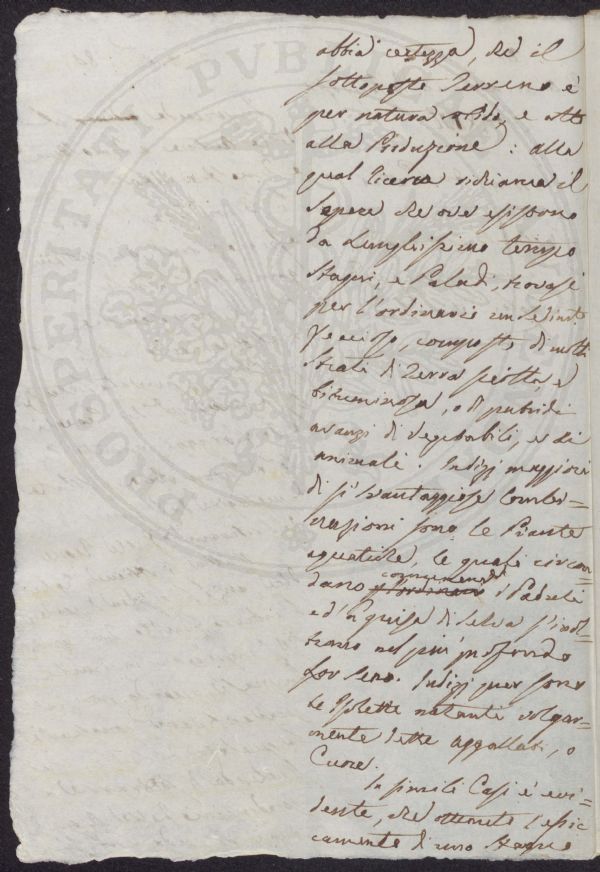 PROSPERITATI PVBLICAE
abbia certezza, che il
sottoposto Terreno è
per natura solido, e atto
alla Produzione : alla
qual ricerca richiamea il
Sapere che ove esistono
da Lunghissimo tempo
Stagni, e Paludi, trovasi
per l'ordinario un
composto di molti
Strati di Terra sciolta e
bituminosa, o di putridi
avanzi di Vegetabili, e di
animali. Indizj maggiori
di sì svantaggiose Combi=
nazioni sono le Piante
aquatiche, le quali circon=
dano comunemente i Paduli
e d'a guisa di Selva s'inol=
trano nel più profondo
lor seno. Indizj pur sono
le Isolette natanti volgar=
mente dette aggallati, o
Cuore.
In simili Casi è evi=
dente, che ottenuto l'asciu
camento d'uno Stagno